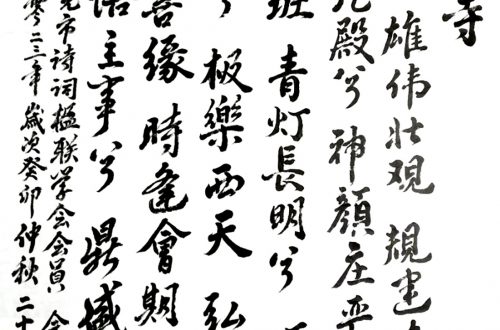 寺
雄伟壮观 規建
殿兮 神顔庄严
班 青灯長明兮
兮 极樂西天 弘
善缘 時逢會期
主事兮 鼎盛
光市诗词楹联学会会員 会
零二三年 歲次癸卯仲秋 二十